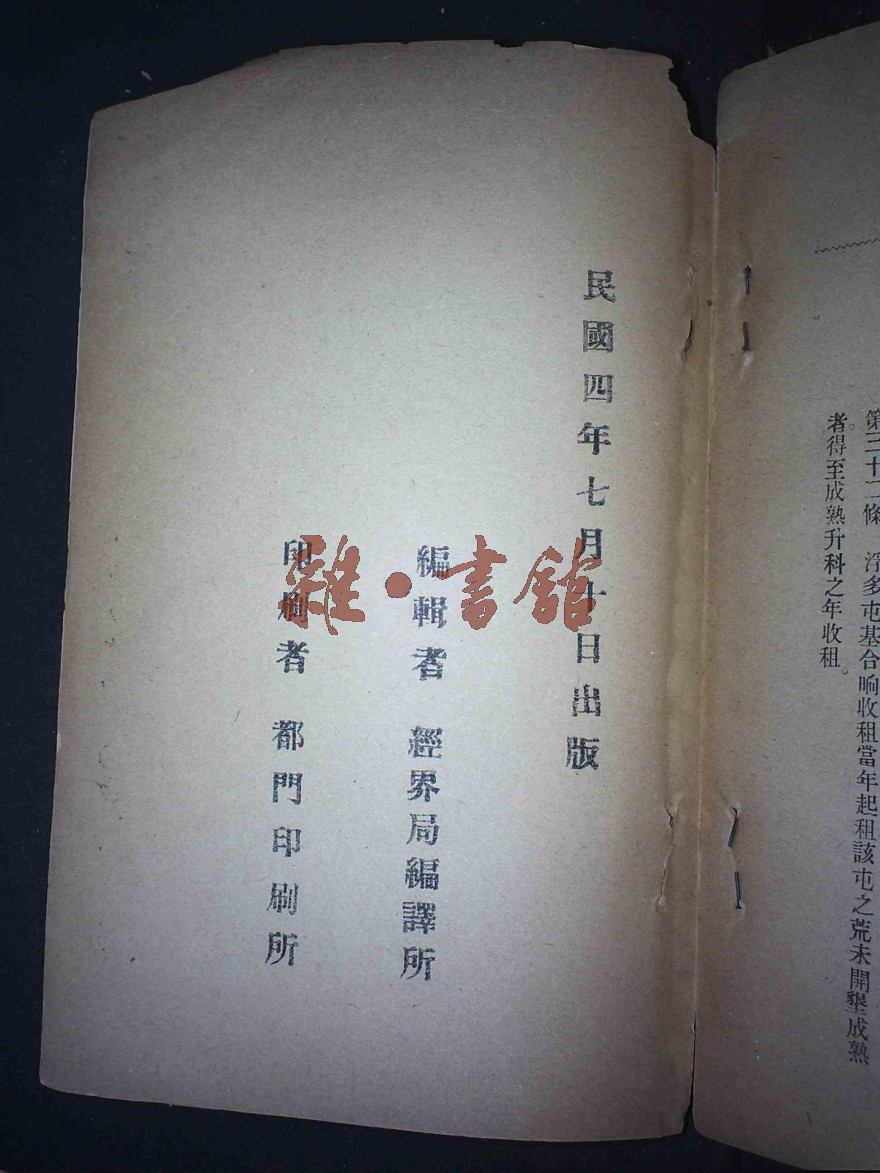 第三十二條　浮多屯基合晌收租當年起租該屯之荒未開墾成熟
者得至成熟升科之年收租。
民國四年七月十日出版
編輯者　經界局編譯所
印刷者　都門印刷所
雜·書館